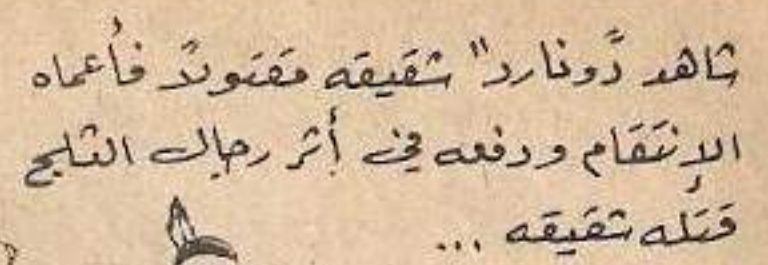 شاهد "دونارد" شقيقه مقتولاً فأعماه
الإنتقام ودفعه في أثر رجال الثلج
قتله شقيقه ...